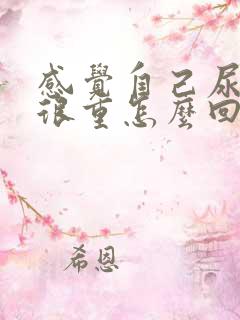 感覺自己尿
很重怎麼回
希恩